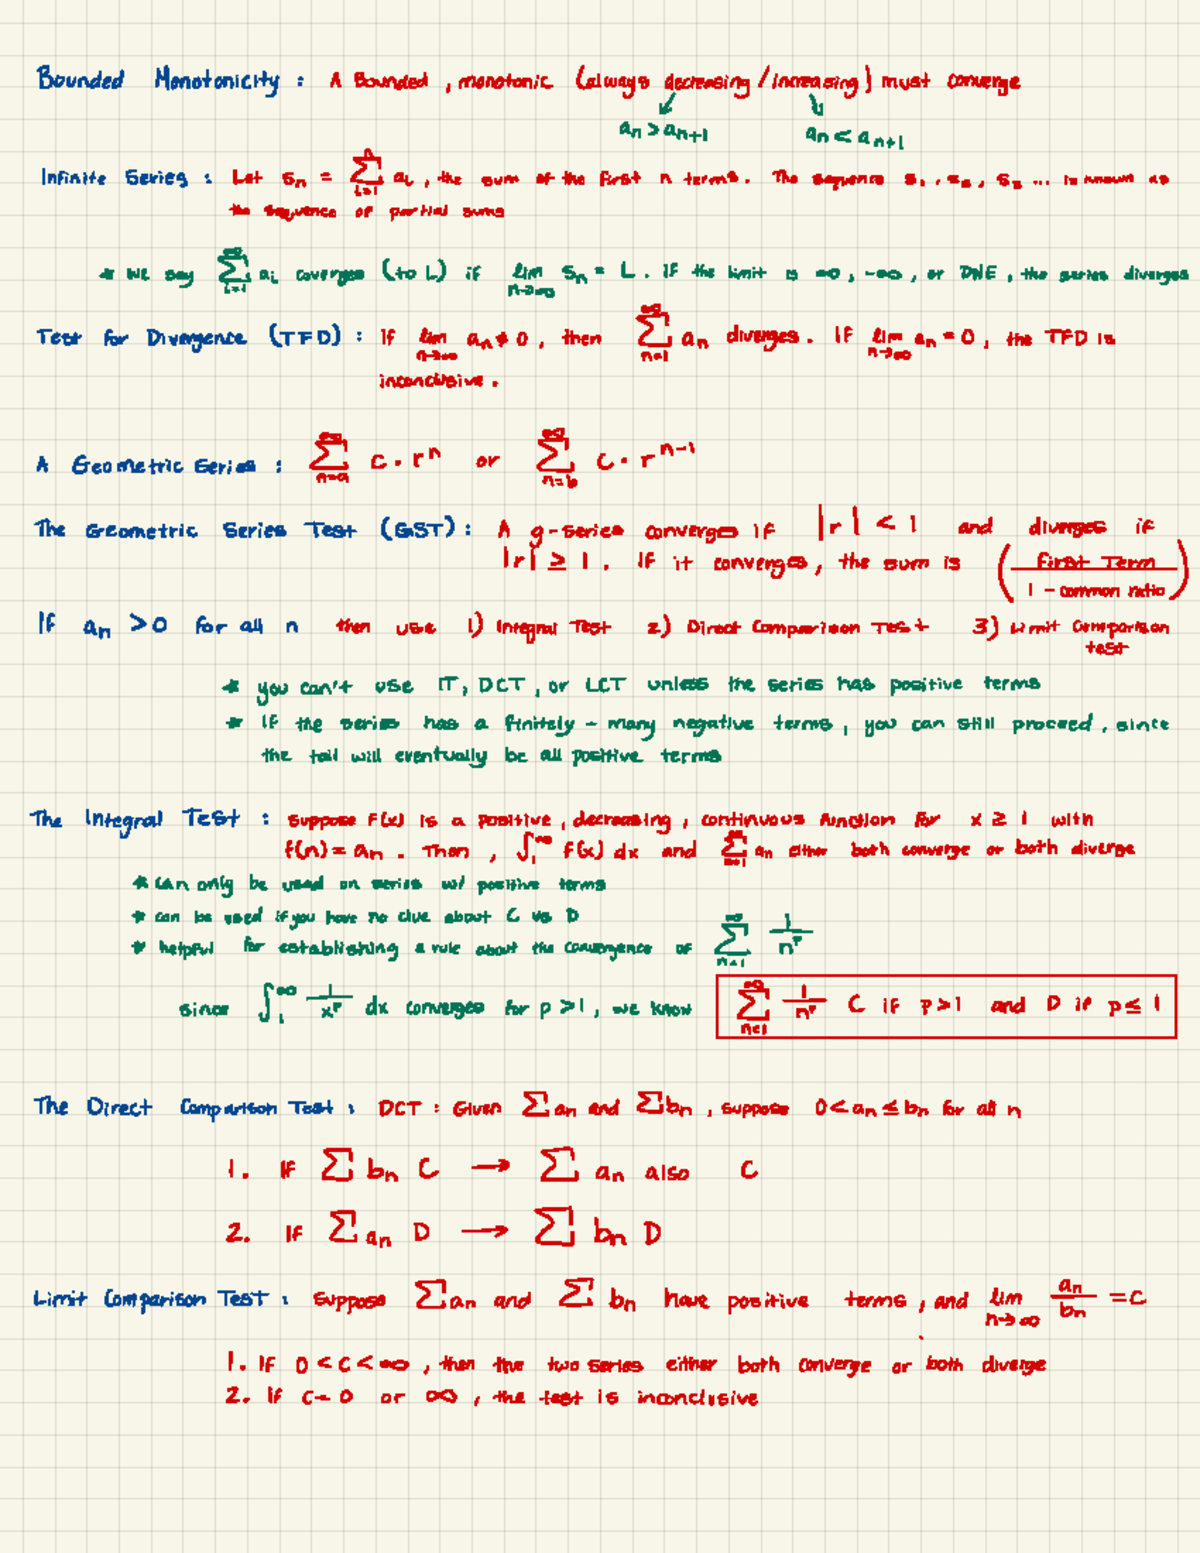 Bounded Monotonicity : A Bounded , monotonic (always decreasing / increasing) must converge
aₙ > aₙ₊₁ aₙ < aₙ₊₁
Infinite Series : Let sₙ = ∑ᵢ₌₁ⁿ aᵢ , the sum of the first n terms. The sequence s₁ , s₂ , s₃ ... is known as
the sequence of partial sums
* we say ∑ᵢ₌₁^∞ aᵢ coverges (to L) if lim n→∞ sₙ = L . If the limit is ∞ , -∞ , or DNE , the series diverges
Test for Divergence (TFD) : If lim n→∞ aₙ ≠ 0 , then ∑ₙ₌₁^∞ aₙ diverges . If lim n→∞ aₙ = 0 , the TFD is
inconclusive .
A Geometric Series : ∑ₙ₌ₐ^∞ c · rⁿ or ∑ n=b ^∞ c · rⁿ⁻¹
The Geometric Series Test (GST) : A g-series converges if |r| < 1 and diverges if
|r| ≥ 1 . If it converges , the sum is (First Term / 1 - common ratio)
If aₙ > 0 for all n then use 1) Integral Test 2) Direct Comparison Test 3) Limit Comparison
test
* you can't use IT, DCT , or LCT unless the series has positive terms
* If the series has a finitely - many negative terms , you can still proceed , since
the tail will eventually be all positive terms
The Integral Test : suppose F(x) is a positive , decreasing , continuous function for x ≥ 1 with
f(n) = aₙ . Then , ∫₁^∞ f(x) dx and ∑ₙ₌₁^∞ aₙ either both converge or both diverge
* can only be used on series w/ positive terms
* can be used if you have no clue about C vs D
* helpful for establishing a rule about the convergence of ∑ₙ₌₁^∞ 1/nᵖ
since ∫₁^∞ 1/xᵖ dx converges for p > 1 , we know ∑ₙ₌₁^∞ 1/nᵖ C if p > 1 and D if p ≤ 1
The Direct Comparison Test : DCT : Given ∑ aₙ and ∑ bₙ , suppose 0 < aₙ ≤ bₙ for all n
1. If ∑ bₙ C → ∑ aₙ also C
2. If ∑ aₙ D → ∑ bₙ D
Limit Comparison Test : suppose ∑ aₙ and ∑ bₙ have positive terms , and lim n→∞ aₙ/bₙ = C
1. If 0 < C < ∞ , then the two series either both converge or both diverge
2. If C = 0 or ∞ , the test is inconclusive